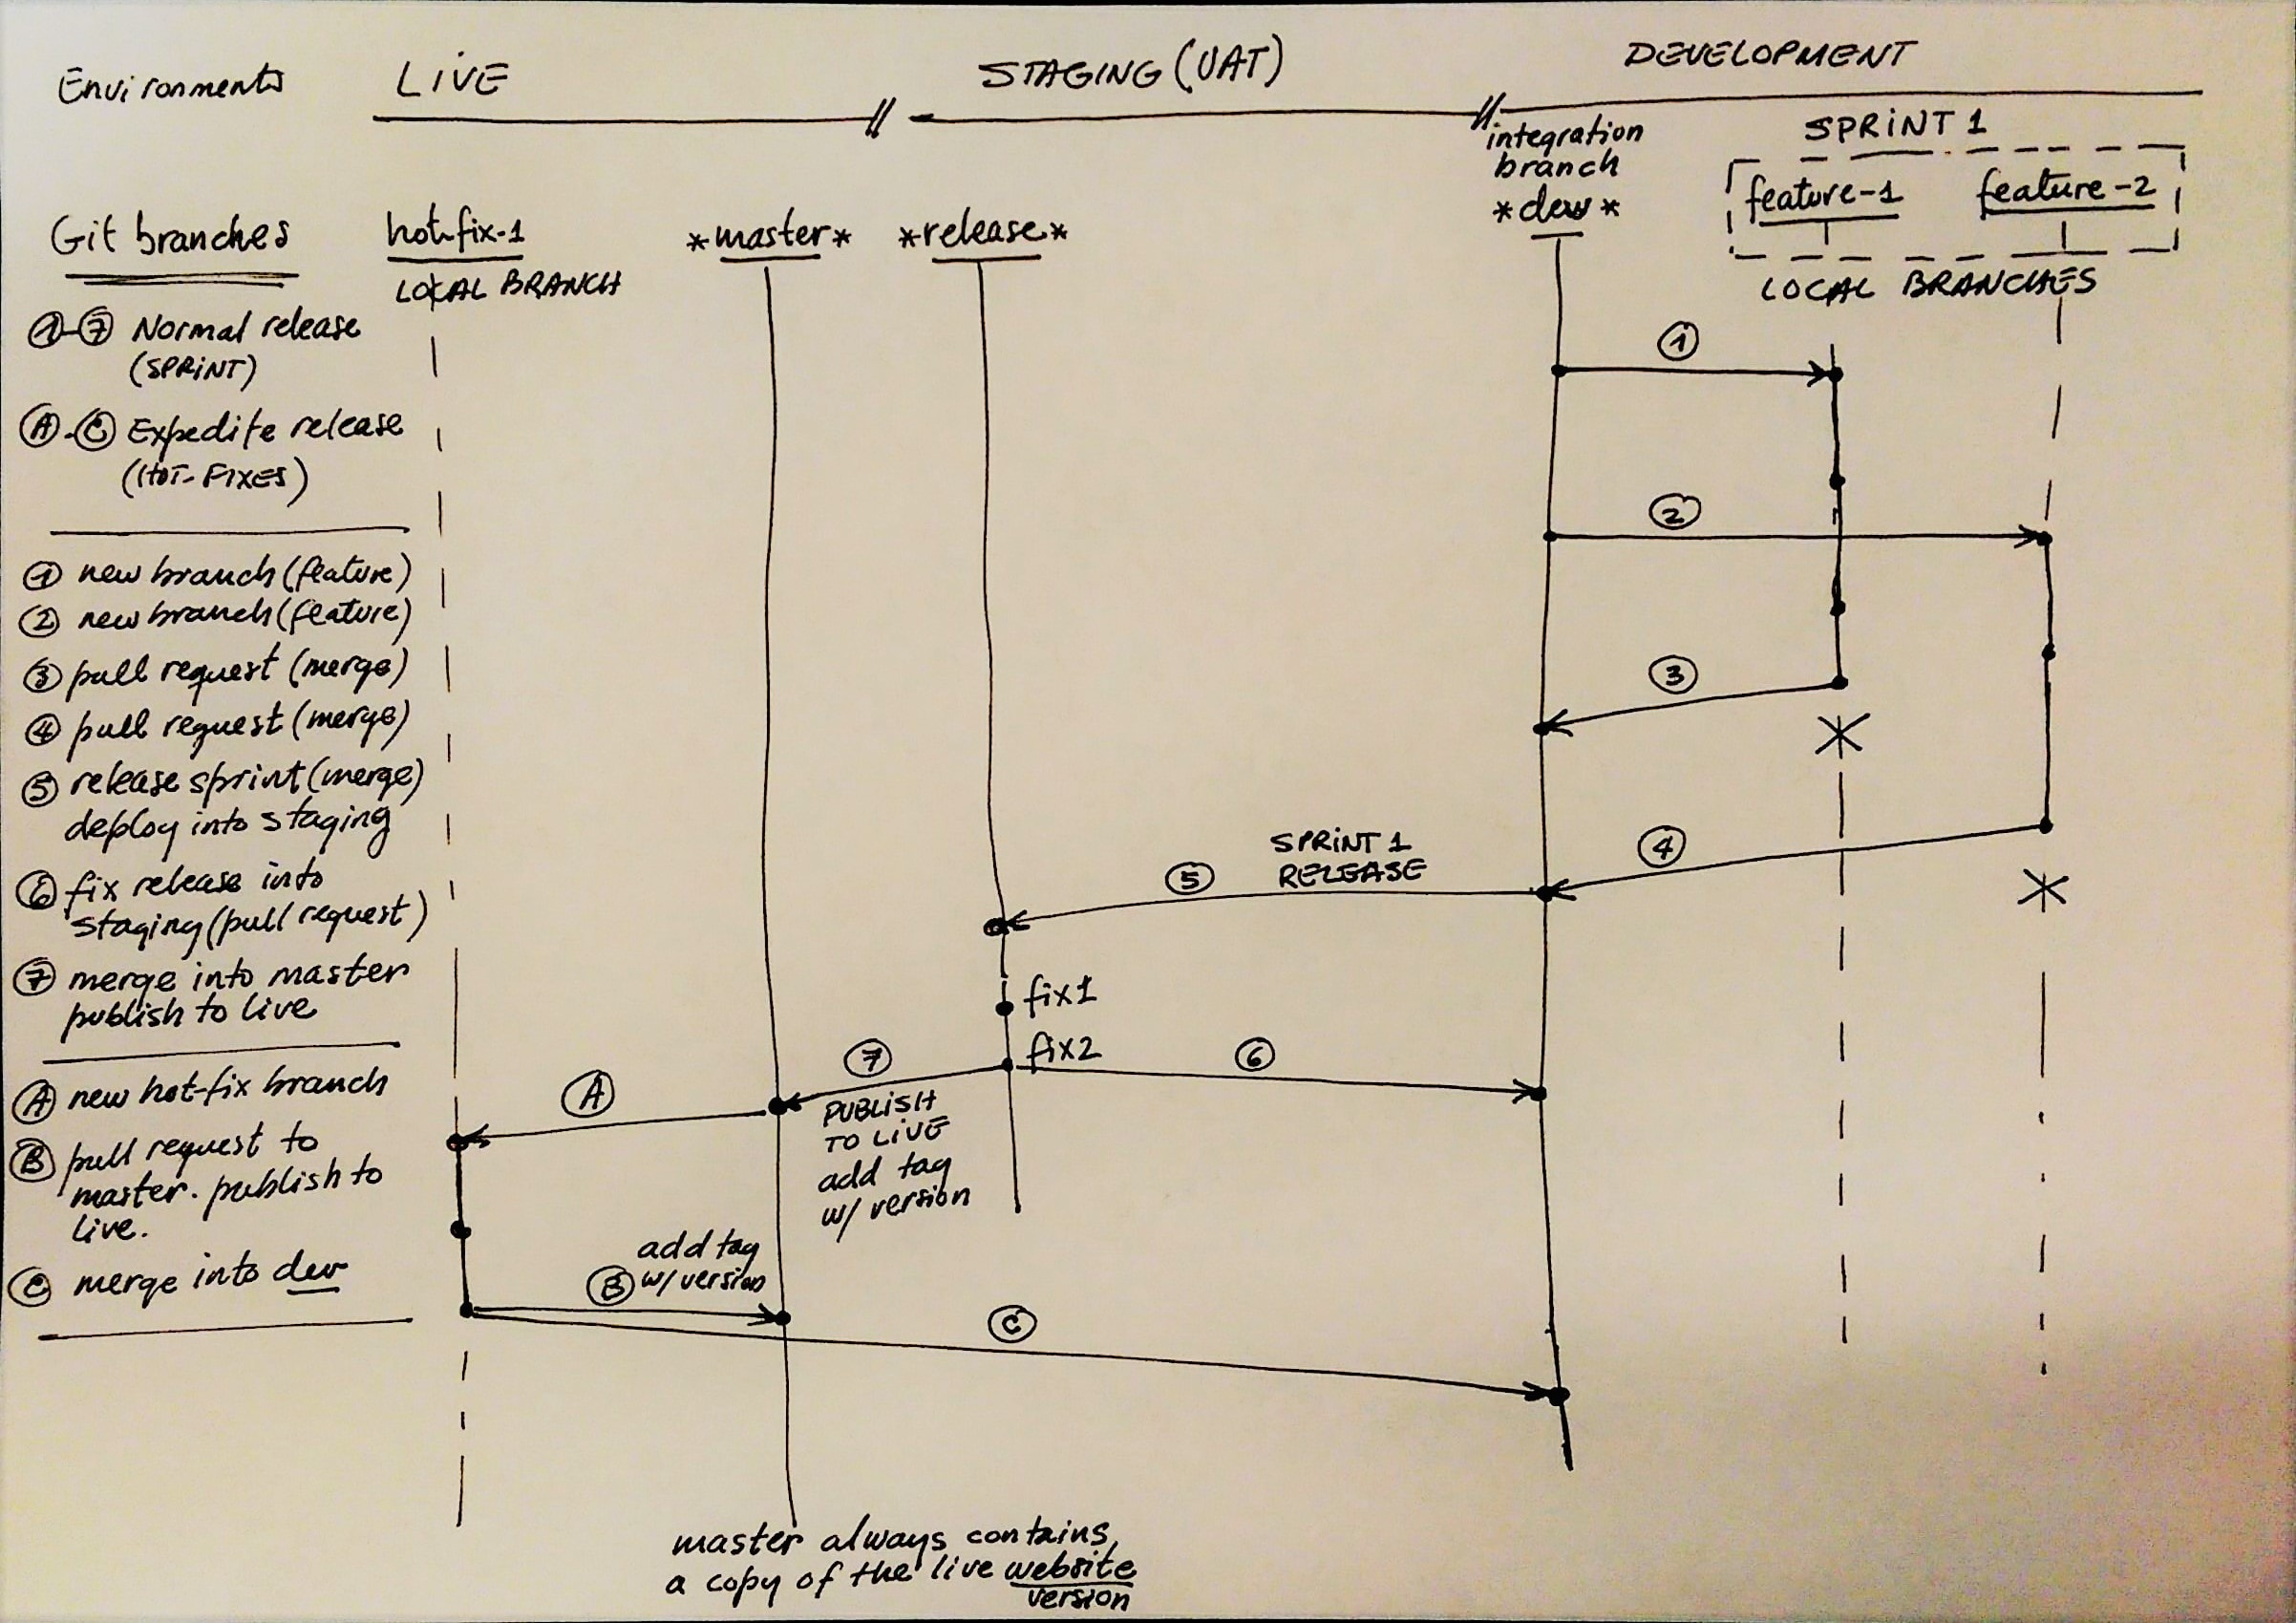 Environments
LIVE
STAGING (UAT)
DEVELOPMENT
integration
branch
*dev*
SPRINT 1
feature-1
feature-2
LOCAL BRANCHES
Git branches
hot-fix-1
LOCAL BRANCH
*master*
*release*
①-⑦ Normal release
(SPRINT)
Ⓐ-Ⓒ Expedite release
(HOT-FIXES)
① new branch (feature)
② new branch (feature)
③ pull request (merge)
④ pull request (merge)
⑤ release sprint (merge)
deploy into staging
⑥ fix release into
staging (pull request)
⑦ merge into master
publish to live
Ⓐ new hot-fix branch
Ⓑ pull request to
master. publish to
live.
Ⓒ merge into dev
①
②
③
④
SPRINT 1
RELEASE
⑤
fix1
fix2
⑥
⑦
PUBLISH
TO LIVE
add tag
w/ version
Ⓐ
add tag
w/ version
Ⓑ
Ⓒ
master always contains
a copy of the live website
version